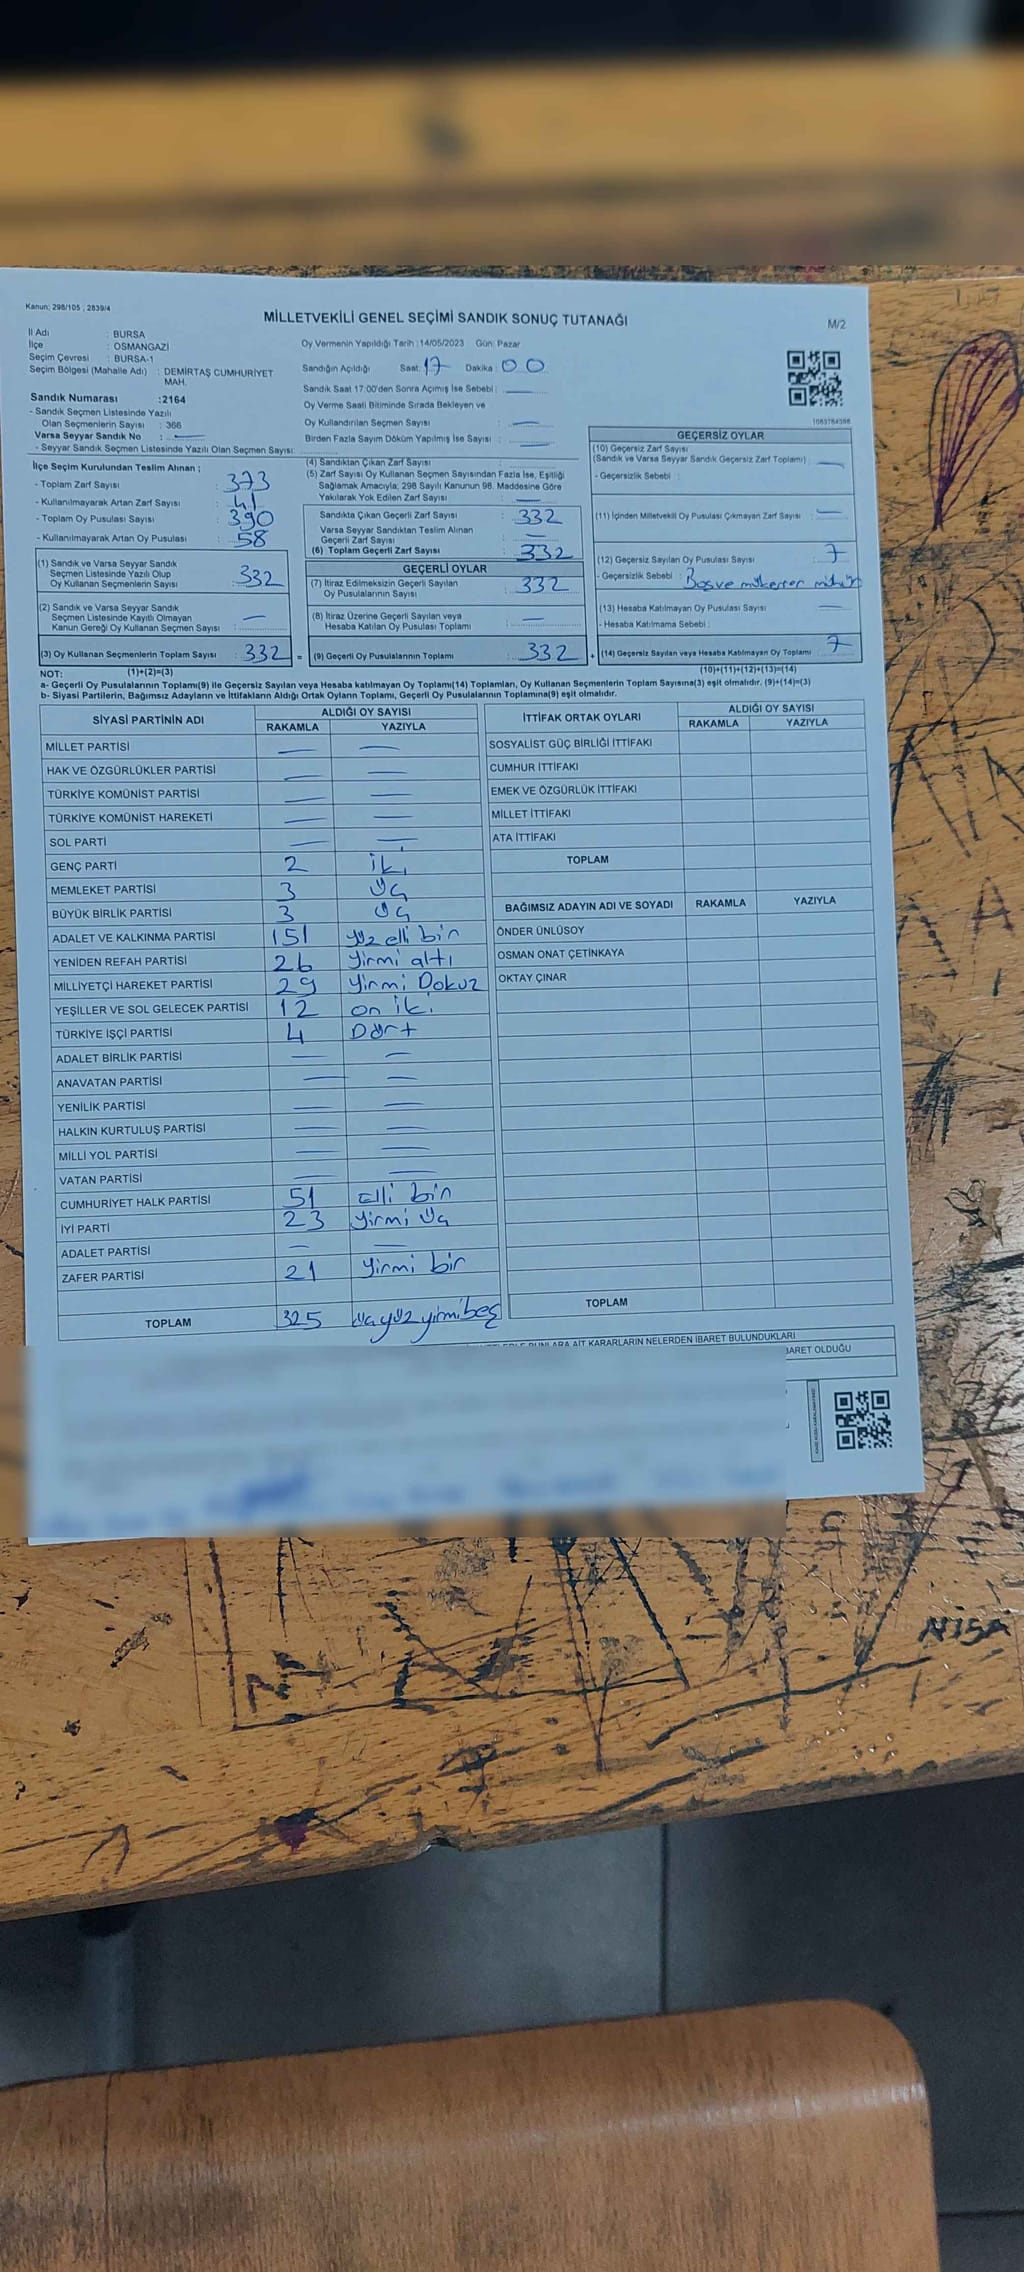 Kanun; 298/105 , 2839/4
MİLLETVEKİLİ GENEL SEÇİMİ SANDIK SONUÇ TUTANAĞI
M/2
İl Adı : BURSA
İlçe : OSMANGAZİ
Seçim Çevresi : BURSA-1
Seçim Bölgesi (Mahalle Adı) : DEMİRTAŞ CUMHURİYET
MAH.
Sandık Numarası :2164
- Sandık Seçmen Listesinde Yazılı
Olan Seçmenlerin Sayısı : 366
Varsa Seyyar Sandık No : —
- Seyyar Sandık Seçmen Listesinde Yazılı Olan Seçmen Sayısı:
Oy Vermenin Yapıldığı Tarih :14/05/2023 Gün: Pazar
Sandığın Açıldığı Saat: 17 Dakika : 00
Sandık Saat 17:00'den Sonra Açımış İse Sebebi : —
Oy Verme Saati Bitiminde Sırada Bekleyen ve
Oy Kullandırılan Seçmen Sayısı : —
Birden Fazla Sayım Döküm Yapılmış İse Sayısı : —
İlçe Seçim Kurulundan Teslim Alınan ;
- Toplam Zarf Sayısı : 373
- Kullanılmayarak Artan Zarf Sayısı : 41
- Toplam Oy Pusulası Sayısı : 390
- Kullanılmayarak Artan Oy Pusulası : 58
(1) Sandık ve Varsa Seyyar Sandık
Seçmen Listesinde Yazılı Olup
Oy Kullanan Seçmenlerin Sayısı : 332
(2) Sandık ve Varsa Seyyar Sandık
Seçmen Listesinde Kayıtlı Olmayan
Kanun Gereği Oy Kullanan Seçmen Sayısı : —
(3) Oy Kullanan Seçmenlerin Toplam Sayısı : 332 =
(4) Sandıktan Çıkan Zarf Sayısı :
(5) Zarf Sayısı Oy Kullanan Seçmen Sayısından Fazla İse, Eşitliği
Sağlamak Amacıyla; 298 Sayılı Kanunun 98. Maddesine Göre
Yakılarak Yok Edilen Zarf Sayısı : —
Sandıkta Çıkan Geçerli Zarf Sayısı : 332
Varsa Seyyar Sandıktan Teslim Alınan
Geçerli Zarf Sayısı : —
(6) Toplam Geçerli Zarf Sayısı : 332
GEÇERLİ OYLAR
(7) İtiraz Edilmeksizin Geçerli Sayılan
Oy Pusulalarının Sayısı : 332
(8) İtiraz Üzerine Geçerli Sayılan veya
Hesaba Katılan Oy Pusulası Toplamı : —
(9) Geçerli Oy Pusulalarının Toplamı : 332 +
GEÇERSİZ OYLAR
(10) Geçersiz Zarf Sayısı
(Sandık ve Varsa Seyyar Sandık Geçersiz Zarf Toplamı) : —
- Geçersizlik Sebebi :
(11) İçinden Milletvekili Oy Pusulası Çıkmayan Zarf Sayısı : —
(12) Geçersiz Sayılan Oy Pusulası Sayısı : 7
- Geçersizlik Sebebi : Boş ve mükerrer mühür
(13) Hesaba Katılmayan Oy Pusulası Sayısı : —
- Hesaba Katılmama Sebebi :
(14) Geçersiz Sayılan veya Hesaba Katılmayan Oy Toplamı : 7
NOT: (1)+(2)=(3)
(10)+(11)+(12)+(13)=(14)
a- Geçerli Oy Pusulalarının Toplamı(9) ile Geçersiz Sayılan veya Hesaba katılmayan Oy Toplamı(14) Toplamları, Oy Kullanan Seçmenlerin Toplam Sayısına(3) eşit olmalıdır. (9)+(14)=(3)
b- Siyasi Partilerin, Bağımsız Adayların ve İttifakların Aldığı Ortak Oyların Toplamı, Geçerli Oy Pusulalarının Toplamına(9) eşit olmalıdır.
SİYASİ PARTİNİN ADI ALDIĞI OY SAYISI
RAKAMLA YAZIYLA
MİLLET PARTİSİ — —
HAK VE ÖZGÜRLÜKLER PARTİSİ — —
TÜRKİYE KOMÜNİST PARTİSİ — —
TÜRKİYE KOMÜNİST HAREKETİ — —
SOL PARTİ — —
GENÇ PARTİ 2 iki
MEMLEKET PARTİSİ 3 üç
BÜYÜK BİRLİK PARTİSİ 3 üç
ADALET VE KALKINMA PARTİSİ 151 yüz elli bin
YENİDEN REFAH PARTİSİ 26 yirmi altı
MİLLİYETÇİ HAREKET PARTİSİ 29 yirmi Dokuz
YEŞİLLER VE SOL GELECEK PARTİSİ 12 on iki
TÜRKİYE İŞÇİ PARTİSİ 4 Dört
ADALET BİRLİK PARTİSİ — —
ANAVATAN PARTİSİ — —
YENİLİK PARTİSİ — —
HALKIN KURTULUŞ PARTİSİ — —
MİLLİ YOL PARTİSİ — —
VATAN PARTİSİ — —
CUMHURİYET HALK PARTİSİ 51 elli bin
İYİ PARTİ 23 yirmi üç
ADALET PARTİSİ — —
ZAFER PARTİSİ 21 yirmi bir
TOPLAM 325 üçyüz yirmibeş
İTTİFAK ORTAK OYLARI ALDIĞI OY SAYISI
RAKAMLA YAZIYLA
SOSYALİST GÜÇ BİRLİĞİ İTTİFAKI
CUMHUR İTTİFAKI
EMEK VE ÖZGÜRLÜK İTTİFAKI
MİLLET İTTİFAKI
ATA İTTİFAKI
TOPLAM
BAĞIMSIZ ADAYIN ADI VE SOYADI RAKAMLA YAZIYLA
ÖNDER ÜNLÜSOY
OSMAN ONAT ÇETİNKAYA
OKTAY ÇINAR
TOPLAM
BUNLARA AİT KARARLARIN NELERDEN İBARET BULUNDUKLARI
BARET OLDUĞU
NİSA